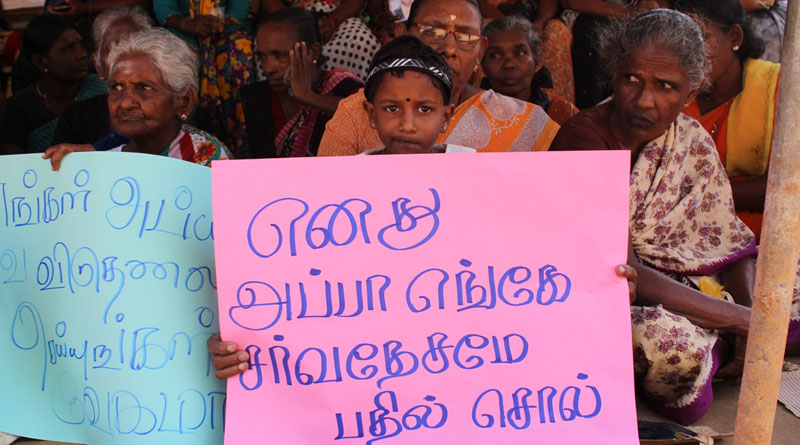 எங்கள் அப்பா
விடுதலை
செய்யுங்கள்
எனது
அப்பா எங்கே
சர்வதேசமே
பதில் சொல்